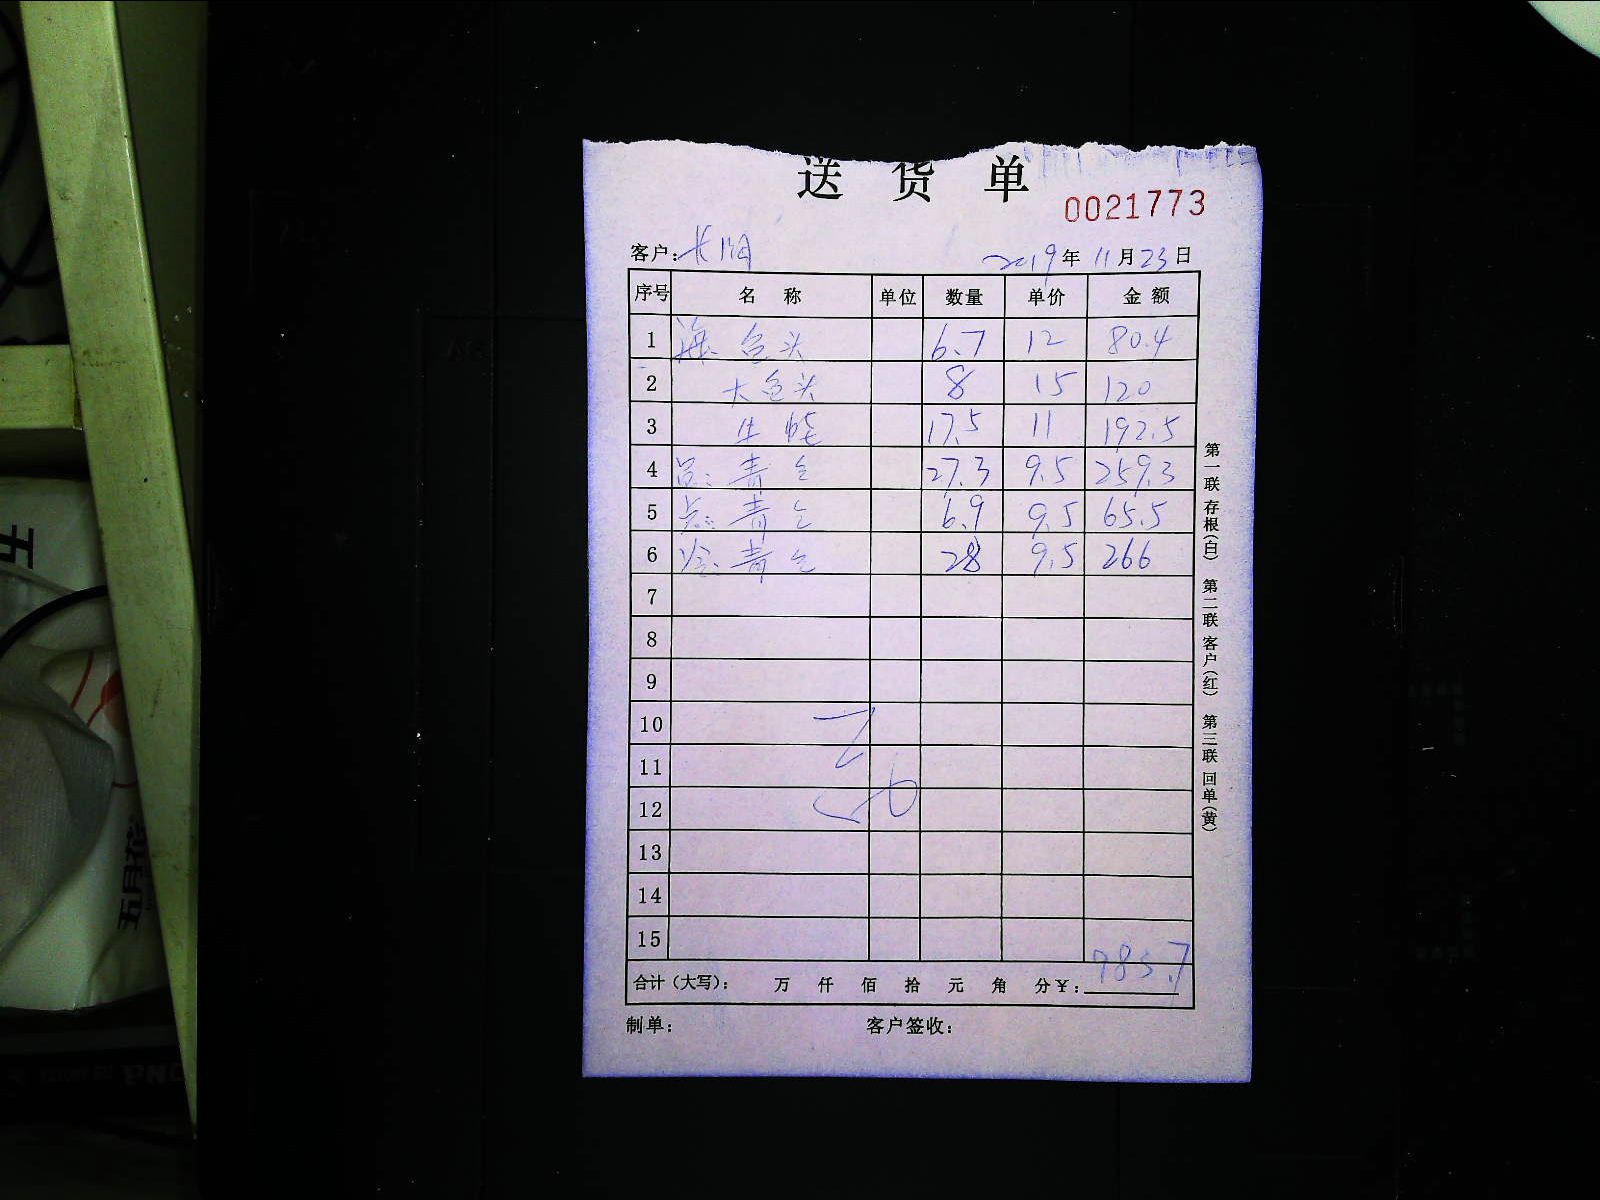 送货单
0021773
客户: 2019年11月23日
序号 名称 单位 数量 单价 金额
1 6.7 12 80.4
2 大鱼头 8 15 120
3 生蚝 17.5 11 192.5
4 27.3 9.5 259.3
5 6.9 9.5 65.5
6 28 9.5 266
7
8
9
10
11
12
13
14
15
985.7
合计(大写): 万 仟 佰 拾 元 角 分¥:
制单: 客户签收:
第一联存根(白) 第二联客户(红) 第三联回单(黄)
五
五月花